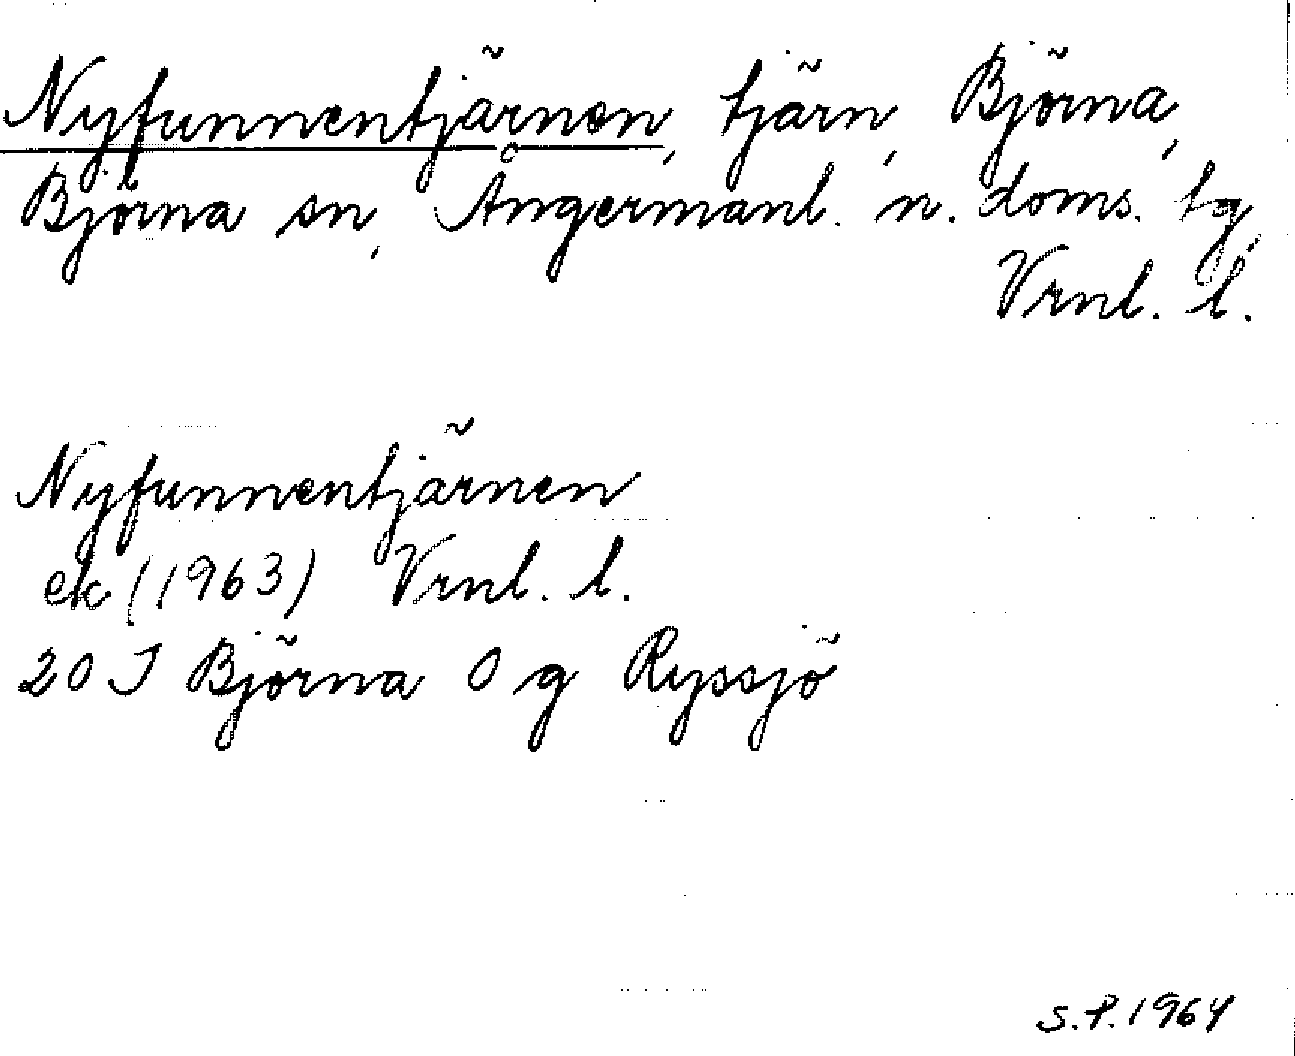 Nyfunnentjärnen, tjärn, Björna,
Björna sn, Ångermanl. n. doms. tg,
Vrnl. l.
Nyfunnentjärnen
ek (1963) Vrnl. l.
20 J Björna 0 g Ryssjö
S.P. 1964